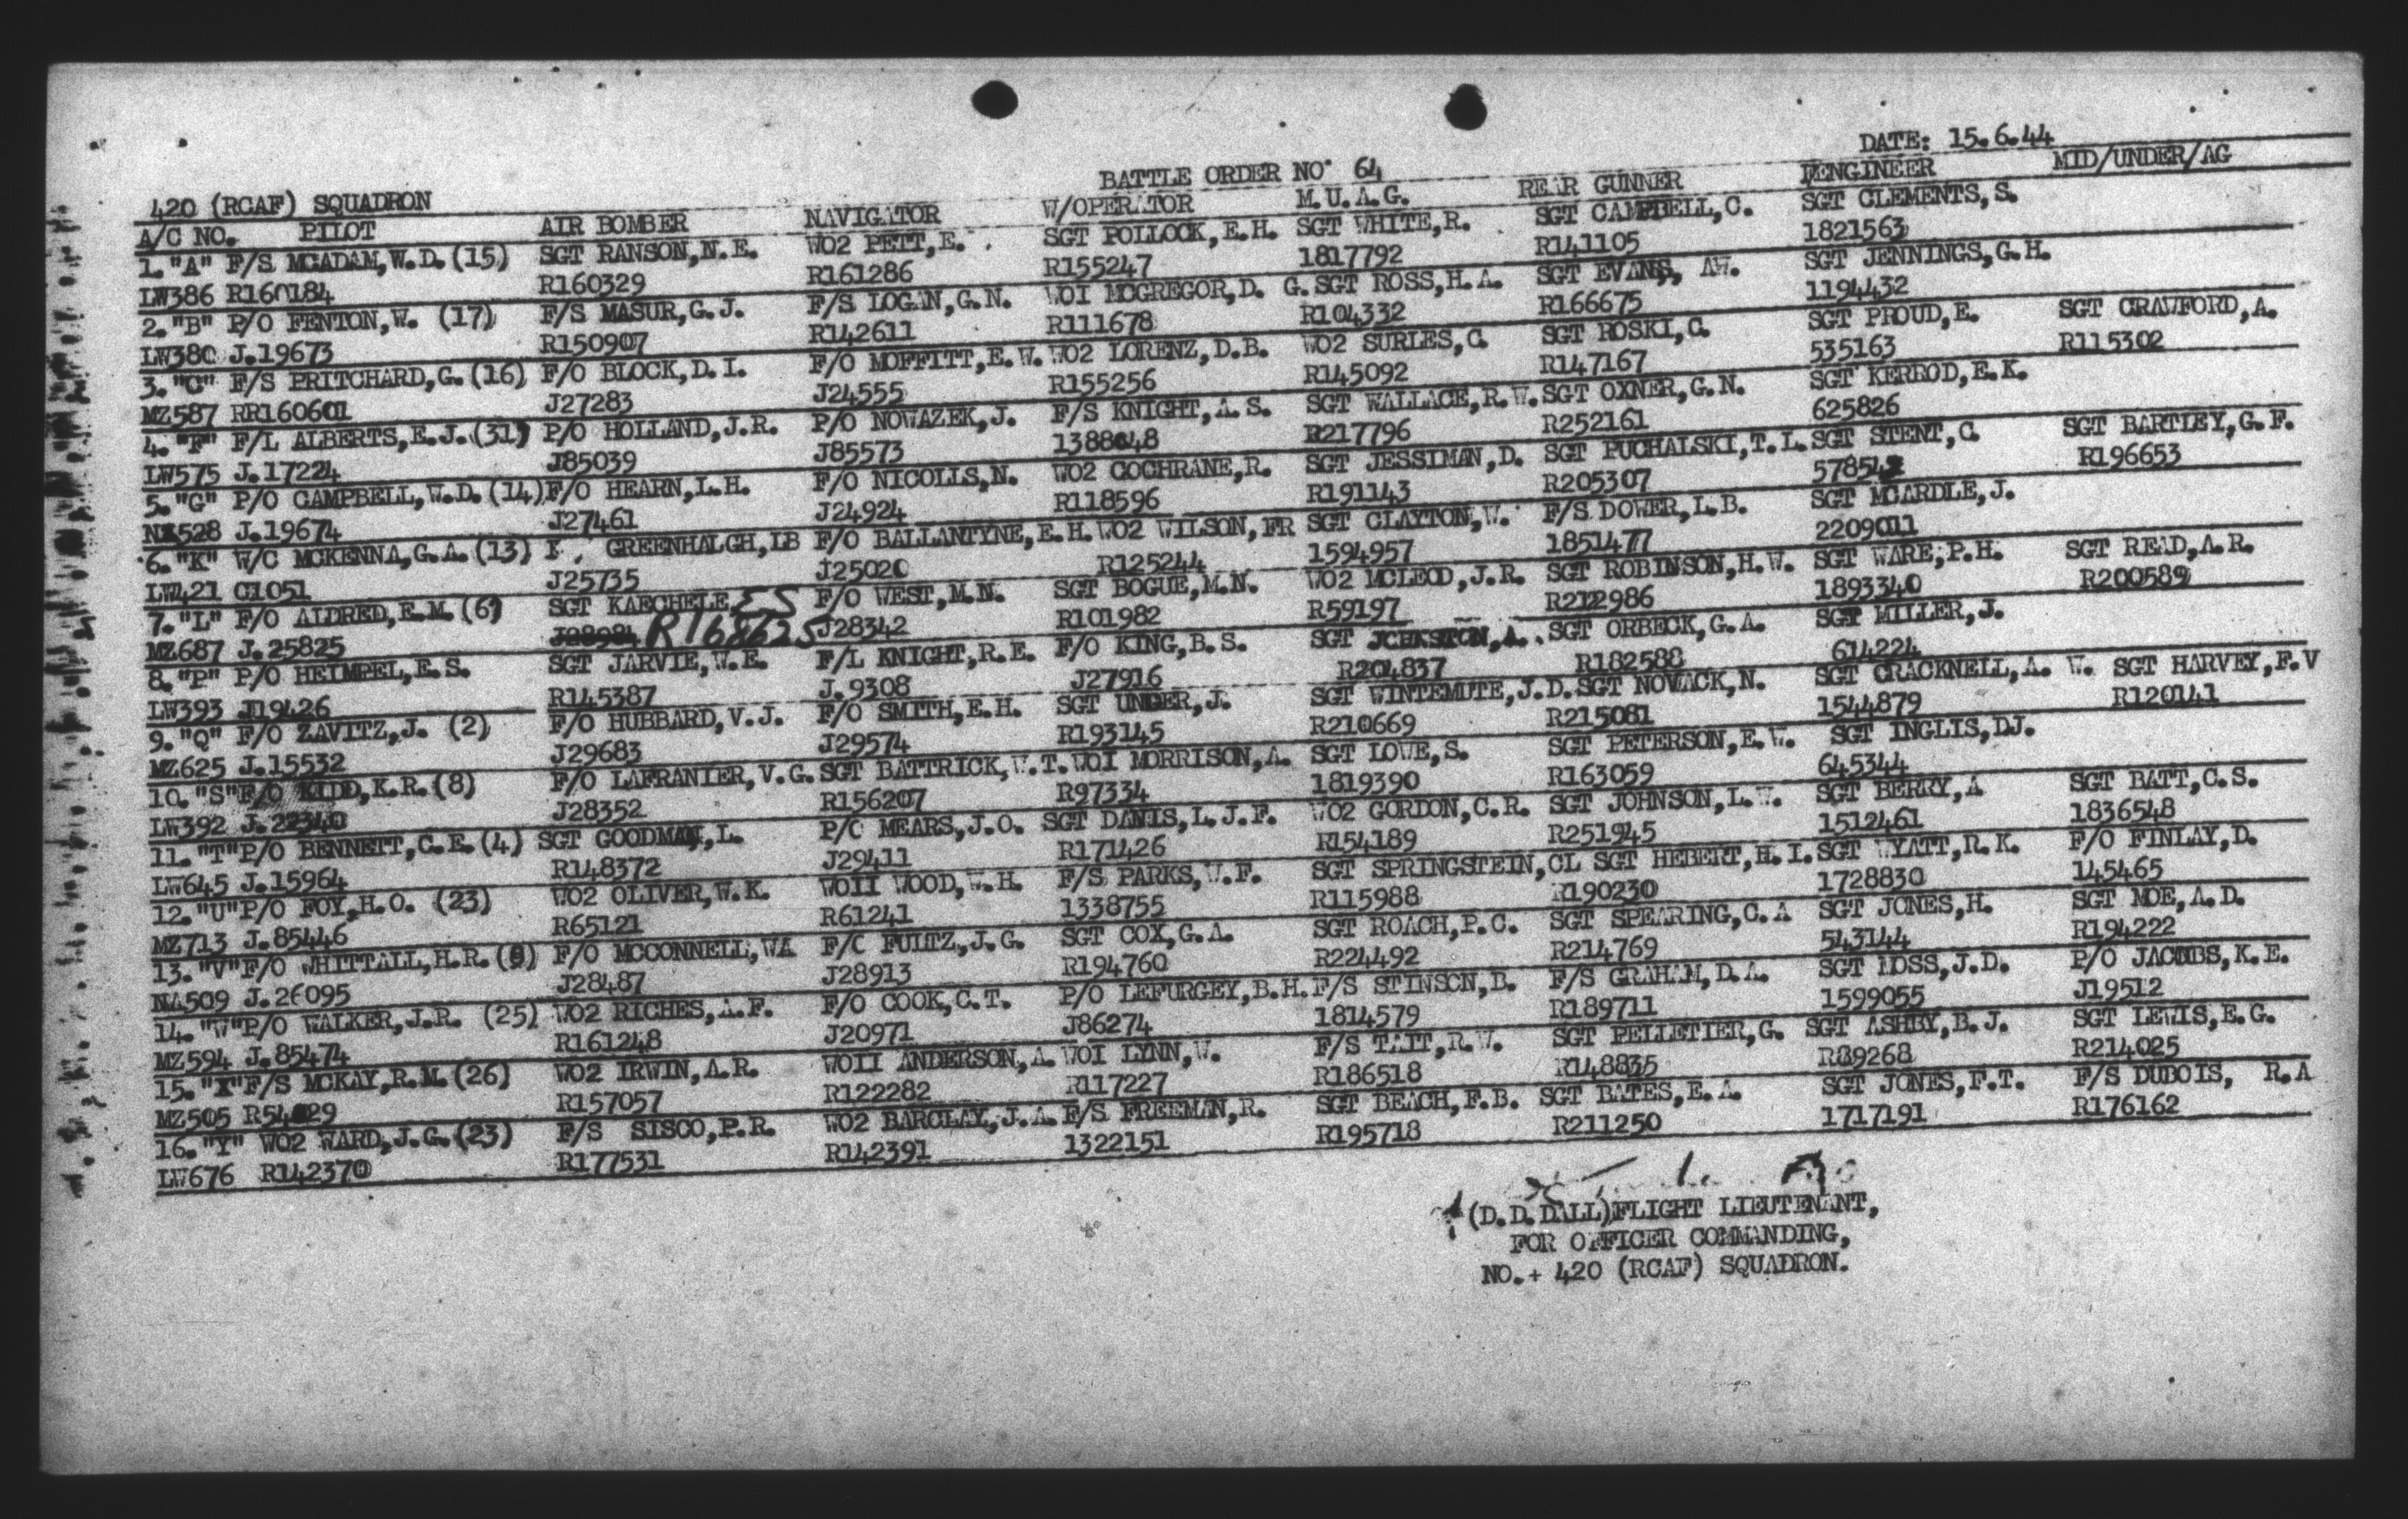 DATE: 15.6.44
BATTLE ORDER NO. 64
420 (RCAF) SQUADRON
A/C NO. PILOT AIR BOMBER NAVIGATOR W/OPERATOR M.U.A.G. REAR GUNNER ENGINEER MID/UNDER/AG
1."A" F/S MCADAM,W.D.(15) SGT RANSON,N.E. WO2 PETT,E. SGT POLLOCK,E.H. SGT WHITE,R. SGT CAMPBELL,C. SGT CLEMENTS,S.
LW386 R160184 R160329 R161286 R155247 1817792 R141105 1821563
2."B" P/O FENTON,W. (17) F/S MASUR,G.J. F/S LOGAN,G.N. WOI MCGREGOR,D. G. SGT ROSS,H.A. SGT EVANS, AW. SGT JENNINGS,G.H.
LW380 J.19673 R150907 R142611 R111678 R104332 R166675 1194432
3."C" F/S PRITCHARD,G.(16) F/O BLOCK,D.I. F/O MOFFITT,E.W. WO2 LORENZ,D.B. WO2 SURLES,C. SGT ROSKI,C. SGT PROUD,E. SGT CRAWFORD,A.
MZ587 RR160601 J27283 J24555 R155256 R145092 R147167 535163 R115302
4."F" F/L ALBERTS,E.J.(31) P/O HOLLAND,J.R. P/O NOWAZEK,J. F/S KNIGHT,A.S. SGT WALLACE,R.W. SGT OXNER,G.N. SGT KERROD,E.K.
LW575 J.17224 J85039 J85573 1388048 R217796 R252161 625826
5."G" P/O CAMPBELL,W.D.(14) F/O HEARN,L.H. F/O NICOLLS,N. WO2 COCHRANE,R. SGT JESSIMAN,D. SGT PUCHALSKI,T.L. SGT STENT,C. SGT BARTLEY,G.F.
528 J.19674 J27461 J24924 R118596 R191143 R205307 R196653
6."K" W/C MCKENNA,G.A.(13) GREENHALGH,IB F/O BALLANTYNE,E.H. WO2 WILSON,FR SGT CLAYTON,W. F/S DOWER,L.B. SGT MCARDLE,J.
LW421 C1051 J25735 J25020 R125244 1594957 1851477 2209011
7."L" F/O ALDRED,E.M.(6) SGT KAECHELE ES F/O WEST,M.N. SGT BOGUE,M.N. WO2 MCLEOD,J.R. SGT ROBINSON,H.W. SGT WARE,P.H. SGT READ,A.R.
MZ687 J.25825 J28984 R168625 J28342 R101982 R59197 R212986 1893340 R200589
8."P" P/O HEIMPEL,E.S. SGT JARVIE,W.E. F/L KNIGHT,R.E. F/O KING,B.S. SGT JOHNSTON,A. SGT ORBECK,G.A. SGT MILLER,J.
LW393 J19426 R145387 J.9308 J27916 R204837 R182588 614224
9."Q" F/O ZAVITZ,J. (2) F/O HUBBARD,V.J. F/O SMITH,E.H. SGT UNGER,J. SGT WINTEMUTE,J.D. SGT NOWACK,N. SGT CRACKNELL,A. W. SGT HARVEY,F.V
MZ625 J.15532 J29683 J29574 R193145 R210669 R215081 1544879 R120141
10."S"F/O KIDD,K.R.(8) F/O LAFRANIER,V.G. SGT BATTRICK,W.T. WOI MORRISON,A. SGT LOWE,S. SGT PETERSON,E.W. SGT INGLIS,DJ.
LW392 J.22340 J28352 R156207 R97334 1819390 R163059 645344
11."T"P/O BENNETT,C.E.(4) SGT GOODMAN,L. P/O MEARS,J.O. SGT DANIS,L.J.F. WO2 GORDON,C.R. SGT JOHNSON,L.W. SGT BERRY,A SGT BATT,C.S.
LW645 J.15964 R148372 J29411 R171426 R154189 R251945 1512461 1836548
12."U"P/O FOY,H.O. (23) WO2 OLIVER,W.K. WOII WOOD,W.H. F/S PARKS,W.F. SGT SPRINGSTEIN,CL SGT HEBERT,H.I. SGT WYATT,R.K. F/O FINLAY,D.
MZ713 J.85446 R65121 R61241 1338755 R115988 R190230 1728830 145465
13."V"F/O WHITTALL,H.R.(8) F/O MCCONNELL,WA F/O FULTZ,J.G. SGT COX,G.A. SGT ROACH,P.C. SGT SPEARING,C.A SGT JONES,H. SGT MOE,A.D.
NA509 J.26095 J28487 J28913 R194760 R224492 R214769 543144 R194222
14."W"P/O WALKER,J.R. (25) WO2 RICHES,A.F. F/O COOK,C.T. P/O LEFURGEY,B.H. F/S STINSON,B. F/S GRAHAM,D.A. SGT MOSS,J.D. P/O JACOBS,K.E.
MZ594 J.85474 R161248 J20971 J86274 1814579 R189711 1599055 J19512
15."X"F/S MCKAY,R.M.(26) WO2 IRWIN,A.R. WOII ANDERSON,A. WOI LYNN,W. F/S TAIT,R.W. SGT PELLETIER,G. SGT ASHBY,B.J. SGT LEWIS,E.G.
MZ505 R54029 R157057 R122282 R117227 R186518 R148835 R89268 R214025
16."Y" WO2 WARD,J.G.(23) F/S SISCO,P.R. WO2 BARCLAY,J.A. F/S FREEMAN,R. SGT BEACH,F.B. SGT BATES,E.A. SGT JONES,F.T. F/S DUBOIS, R.A
LW676 R142370 R177531 R142391 1322151 R195718 R211250 1717191 R176162
(D.D.DALL)FLIGHT LIEUTENANT,
FOR OFFICER COMMANDING,
NO.+ 420 (RCAF) SQUADRON.